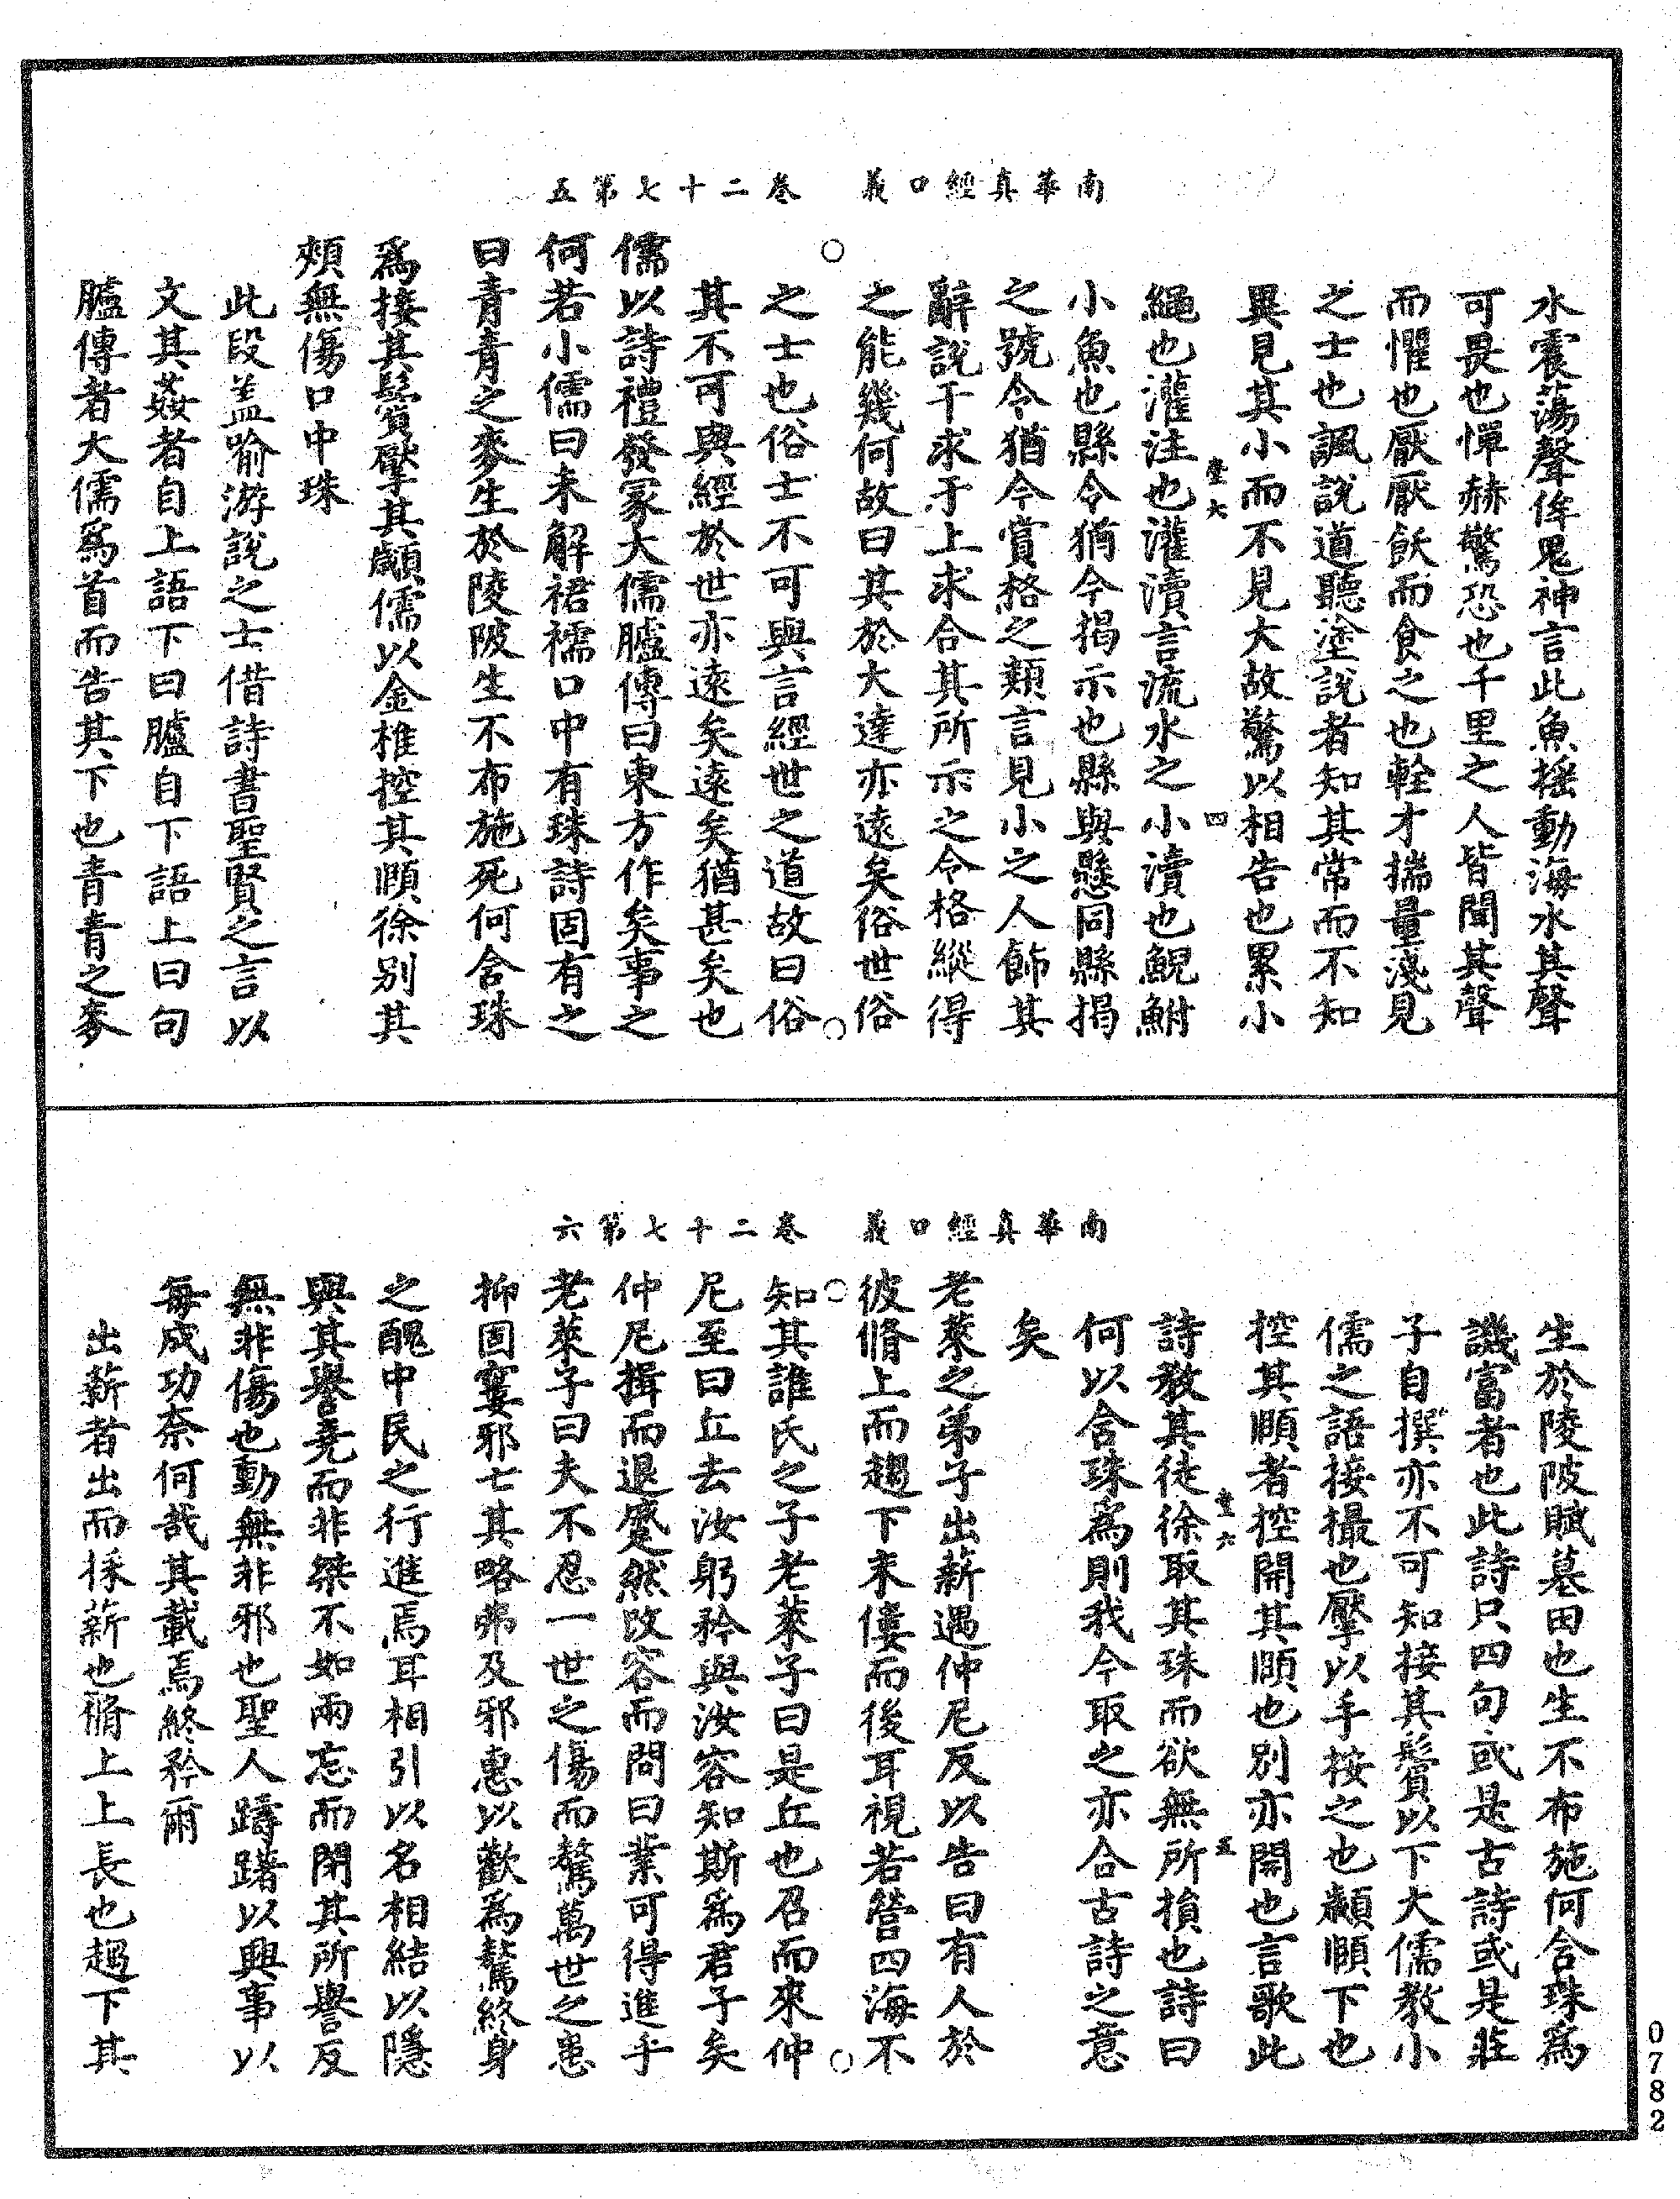 南華真經口義　卷二十七第五
水震蕩聲侔鬼神言此魚摇動海水其聲
可畏也憚赫驚恐也千里之人皆聞其聲
而懼也厭厭飫而食之也輇才揣量淺見
之士也諷說道聽塗說者知其常而不知
異見其小而不見大故驚以相告也累小
繩也灌注也灌瀆言流水之小瀆也鯢鮒
小魚也縣令猶今揭示也縣與懸同縣揭
之號令猶今賞格之類言見小之人飾其
辭說干求于上求合其所示之令格縱得
之能幾何故曰其於大達亦遠矣俗世俗
之士也俗士不可與言經世之道故曰俗
其不可與經於世亦遠矣遠矣猶甚矣也
儒以詩禮發冢大儒臚傳曰東方作矣事之
何若小儒曰未解裙襦口中有珠詩固有之
曰青青之麥生於陵陂生不布施死何含珠
爲接其鬢擪其顪儒以金椎控其頤徐別其
頰無傷口中珠
此段盖喻游說之士借詩書聖賢之言以
文其姦者自上語下曰臚自下語上曰句
臚傳者大儒爲首而告其下也青青之麥
南華真經口義　卷二十七第六
生於陵陂賦墓田也生不布施何含珠爲
譏富者也此詩只四句或是古詩或是莊
子自撰亦不可知接其鬢以下大儒教小
儒之語接撮也擪以手按之也顪頤下也
控其頤者控開其頤也別亦開也言歌此
詩教其徒徐取其珠而欲無所損也詩曰
何以含珠爲則我今取之亦合古詩之意
矣
老萊之弟子出薪遇仲尼反以告曰有人於
彼脩上而趨下末僂而後耳視若營四海不
知其誰氏之子老萊子曰是丘也召而來仲
尼至曰丘去汝躬矜與汝容知斯爲君子矣
仲尼揖而退蹙然改容而問曰業可得進乎
老萊子曰夫不忍一世之傷而驁萬世之患
抑固窶邪亡其略弗及邪惠以歡爲驁終身
之醜中民之行進焉耳相引以名相結以隱
與其譽堯而非桀不如兩忘而閉其所譽反
無非傷也動無非邪也聖人躊躇以興事以
每成功奈何哉其載焉終矜爾
出薪者出而採薪也脩上上長也趨下其
0782